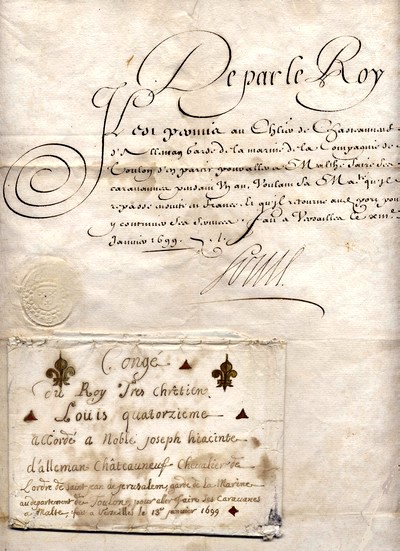 De par le Roy
Il est permis au Chler de Chasteauneuf
d'Alleman garde de la marine de la Compagnie de
Toulon d'en partir pour aller a Malthe faire ses
caravannes pendant Un an, Voulant Sa Maté qu'il
repasse ensuite en France, & qu'il retourne au port pour
y continuer ses services. fait a Versailles le xiiie
Janvier 1699.
Louis
Congé
du Roy Tres Chrêtien
Louis quatorzieme
accordé a Noble joseph hiacinte
d'alleman Châteauneuf Chevalier de
L'ordre de saint jean de jerusalem, garde de la Marine
au departement de Toulon pour aler faire ses Caravanes
a Malte, fait a Versailles le 13e janvier 1699